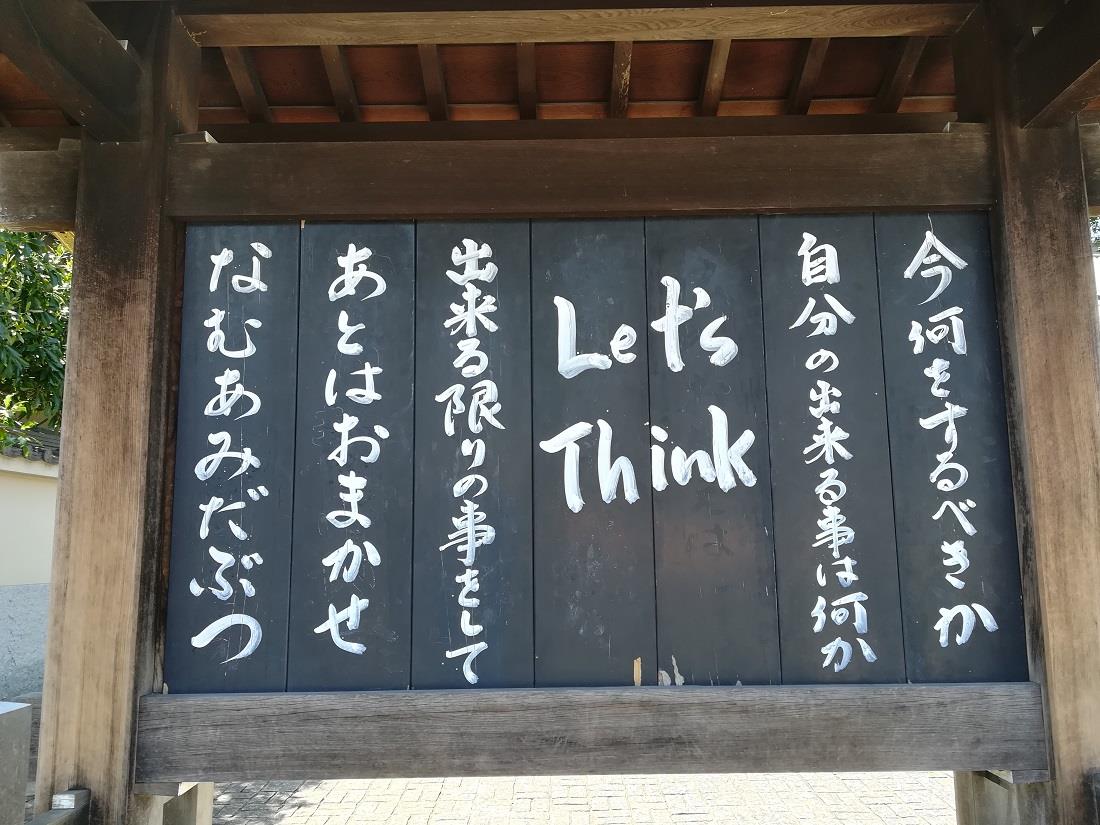 今何をするべきか
自分の出来る事は何か
Let's
Think
出来る限りの事をして
あとはおまかせ
なむあみだぶつ